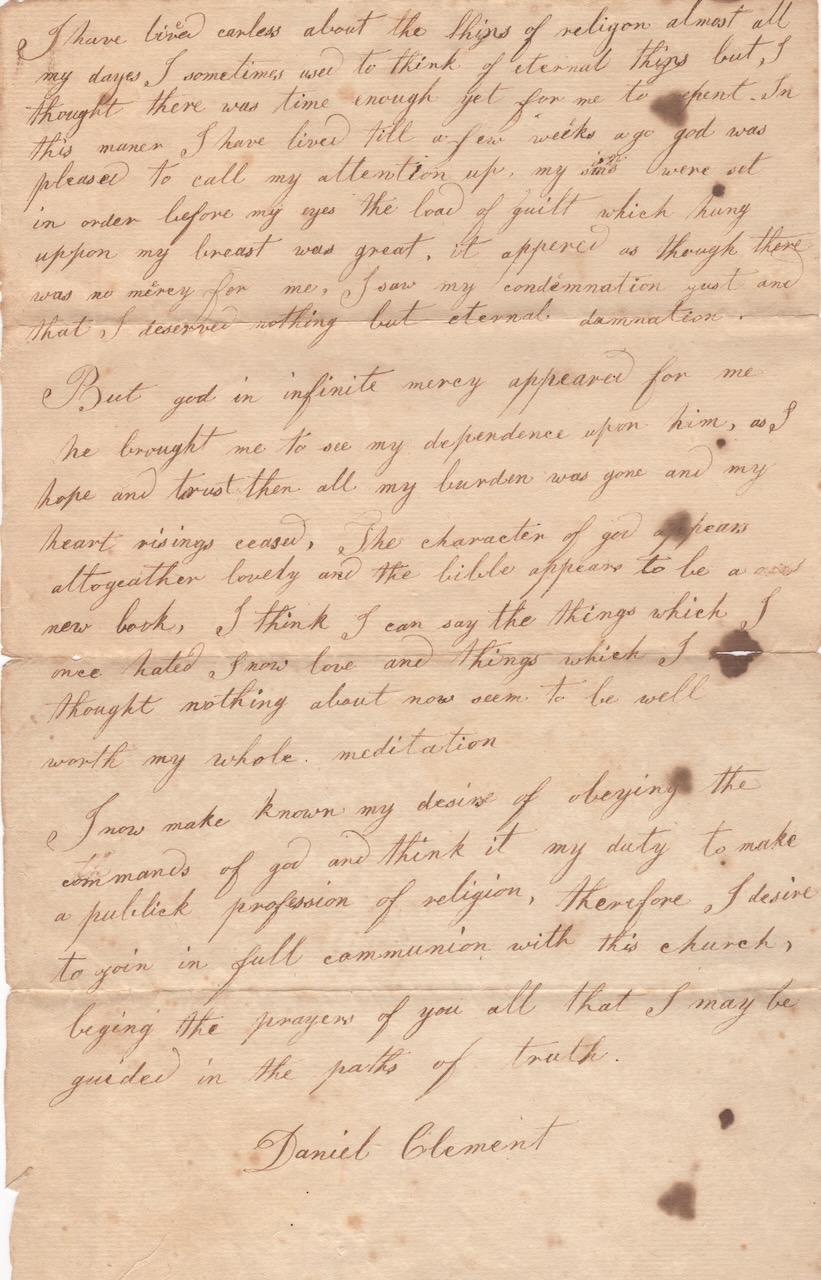 I have lived carless about the things of religon almost all
my dayes I sometimes used to think of eternal things but I
thought there was time enough yet for me to repent. In
this maner I have lived till a few weeks ago god was
pleased to call my attention up, my sins were set
in order before my eyes the load of guilt which hung
uppon my breast was great, it appered as though there
was no mercy for me, I saw my condemnation just and
that I deserved nothing but eternal damnation.
But god in infinite mercy appeared for me
he brought me to see my dependence upon him, as I
hope and trust then all my burden was gone and my
heart risings ceased, The character of god appears
altogeather lovely and the bible appears to be a
new book, I think I can say the things which I
once hated I now love and things which I
thought nothing about now seem to be well
worth my whole meditation
I now make known my desire of obeying the
commands of god and think it my duty to make
a publick profession of religion, therefore I desire
to join in full communion with this church,
beging the prayers of you all that I may be
guided in the paths of truth.
Daniel Clement